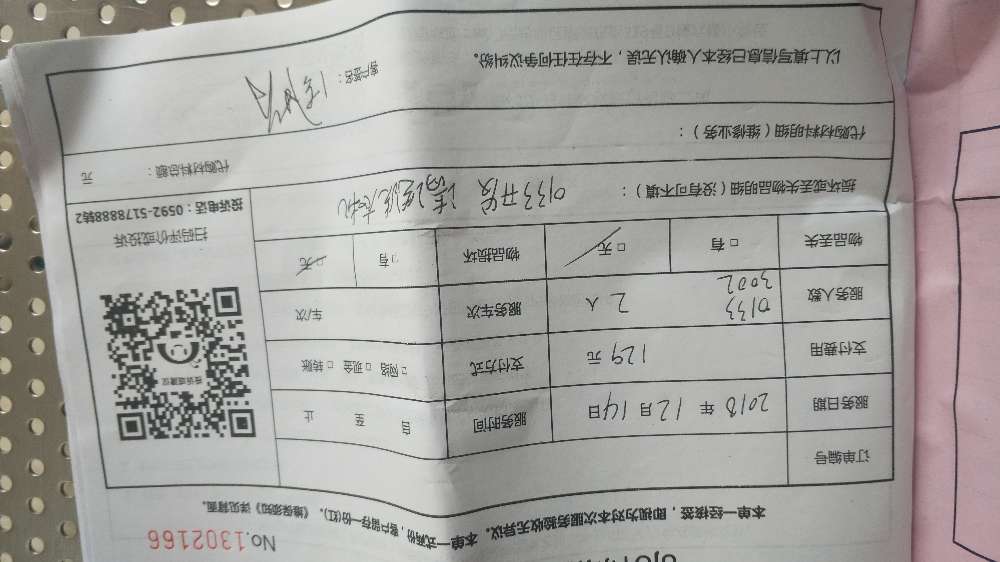 No.1302166
本单一经接签，即视为对本次服务验收无异议。本单一式两份，客户留存一份(红)，《维保须知》详见背面。
订单编号
服务日期 2018 年 12 月 14 日 服务时间 自 至 止
支付费用 129 元 支付方式 □网络 □现金 □转账
服务人数 0133 3002 2 人 服务车次 车/次
物品丢失 □有 □无 物品损坏 □有 □无
扫码评价或投诉
投诉电话：0592-5178888转2
损坏或丢失物品明细（没有可不填）： 0133开发 清洗洗衣机
代购材料明细（维修业务）： 代购材料总额： 元
客户签名：
以上填写信息已经本人确认无误，不存在任何争议纠纷。